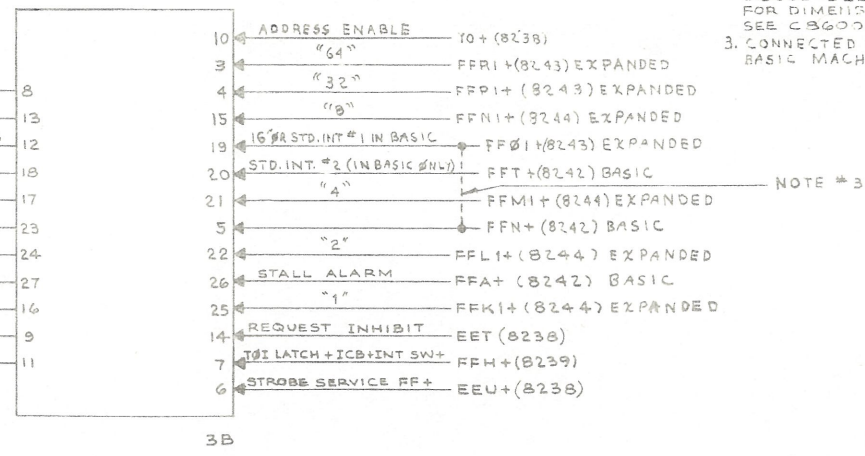 FOR DIMENS
SEE C8600
3. CONNECTED
BASIC MACH
10 ADDRESS ENABLE YO+(8238)
3 "64" FFRI+(8243) EXPANDED
8 4 "32" FFPI+(8243) EXPANDED
13 15 "8" FFNI+(8244) EXPANDED
12 19 16 ØR STD. INT #1 IN BASIC FFØI+(8243) EXPANDED
18 20 STD. INT. #2 (IN BASIC ØNLY) FFT+(8242) BASIC
17 21 "4" FFMI+(8244) EXPANDED
NOTE #3
23 5 FFN+(8242) BASIC
24 22 "2" FFLI+(8244) EXPANDED
27 26 STALL ALARM FFA+ (8242) BASIC
16 25 "1" FFKI+(8244) EXPANDED
9 14 REQUEST INHIBIT EET (8238)
11 7 TØI LATCH+ICB+INT SW+ FFH+(8239)
6 STROBE SERVICE FF+ EEU+(8238)
3B